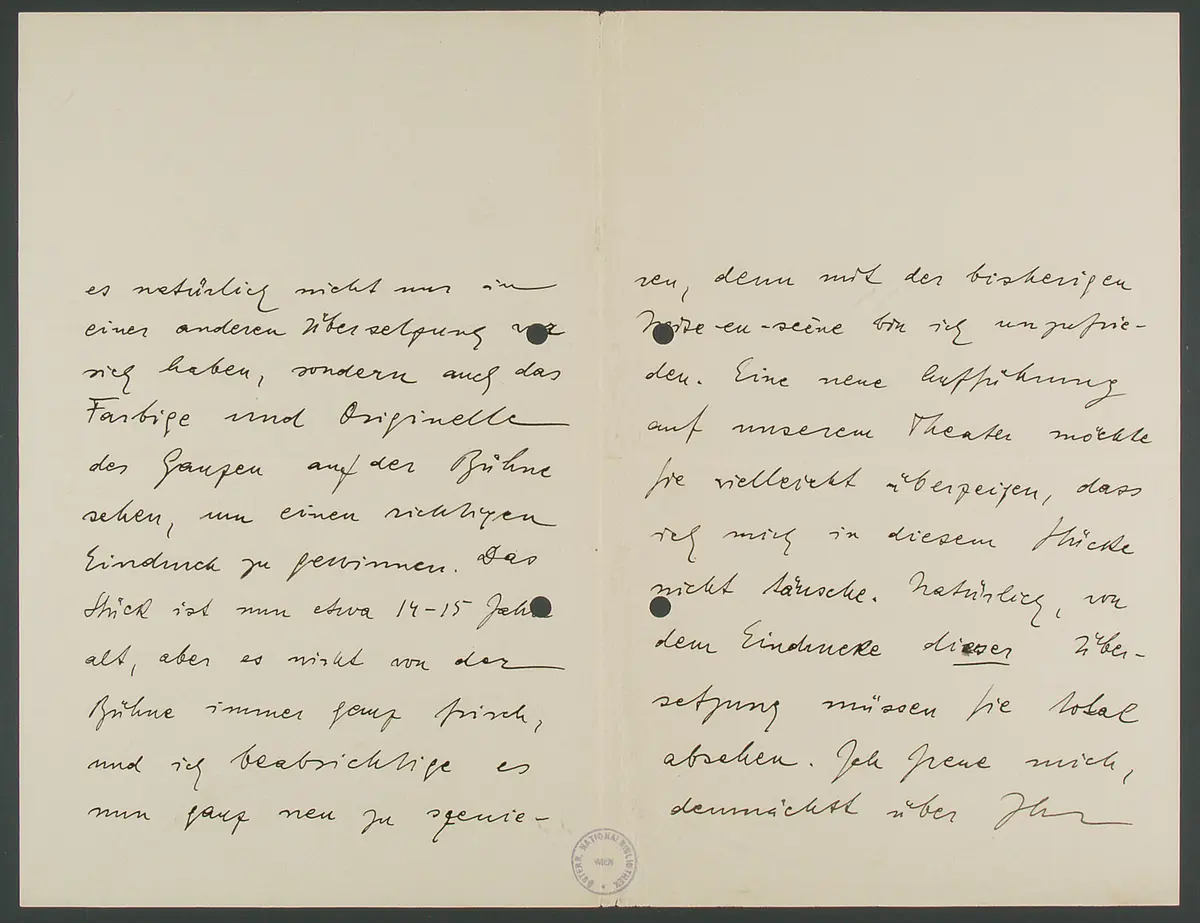 es natürlich nicht nur in
einer anderen Übersetzung vor
sich haben, sondern auch das
Farbige und Originelle
des Ganzen auf der Bühne
sehen, um einen richtigen
Eindruck zu gewinnen. Das
Stück ist nun etwa 14-15 Jahre
alt, aber es wirkt von der
Bühne immer ganz frisch,
und ich beabsichtige es
nun ganz neu zu szenie-
ren, denn mit der bisherigen
-en-scène bin ich unzufrie-
den. Eine neue Aufführung
auf unserem Theater möchte
Sie vielleicht überzeigen, dass
ich mich in diesem Stücke
nicht täusche. Natürlich, von
dem Eindrucke dieser Über-
setzung müssen Sie total
absehen. Ich freue mich,
demnächst über Ihr
ÖSTERR. NATIONALBIBLIOTHEK
WIEN